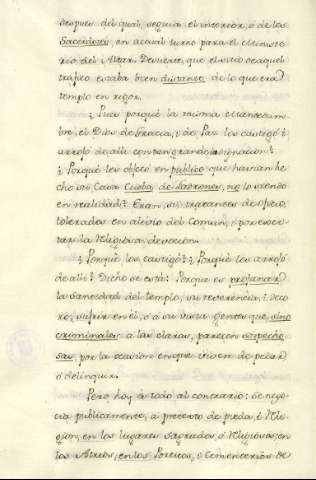 despues del qual, seguia el interior, ó de los
Sacerdotes, en aquel turno para el Ministe-
rio del Altar. De suerte, que el sitio de aquel
trafico estaba bien distante de lo que era
templo en rigor.
¿ Pues porqué la misma Mansedum-
bre, el Dios de Gracia, i de Paz los castigó i
arrojó de alli con tan grande indignacion?
¿ Porqué les objetó en publico que havian he-
cho su Casa Cueba de Ladrones, no lo siendo
en realidad? Eran, sí, tratantes de oficio,
tolerados en alivio del Comun, i por
la Religiosa devocion.
¿ Porqué los castigó? ¿ Porqué los arrojó
de alli? Dicho se está: Porque es profanar
la santedad del templo, su reverencia, i deco-
ro, sufrir en él, ó á su vista gentes que, sino
criminales á las claras, parecen sospecho-
sas, por la ocasion en que viven de pecar
ó delinquir.
Pero, hoy es todo al contrario: se nego-
cia publicamente, á pretexto de piedad, i Reli-
gion, en los lugares sagrados, ó Religiosos, en
los Atrios, en los Porticos, ó Cementerios de